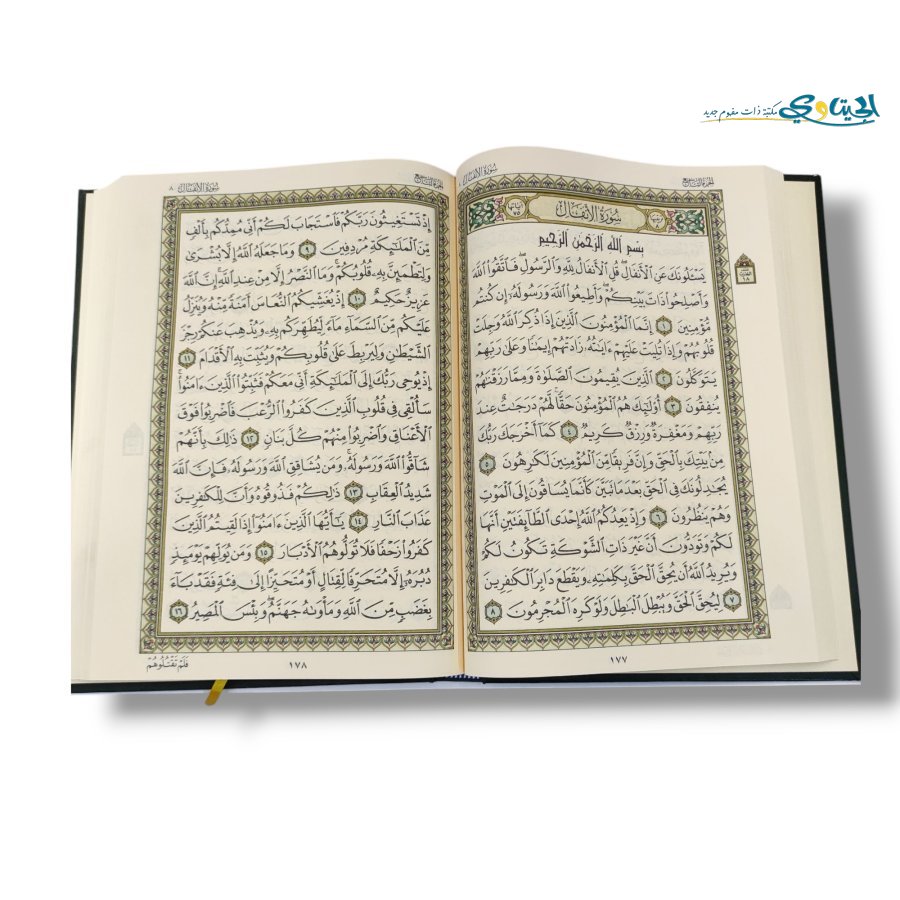 الجيتاوي مكتبة ذات مفهوم جديد
سُورَةُ الأَنفَالِ
سُورَةُ الأَنفَالِ
بِسْمِ اللَّهِ الرَّحْمَٰنِ الرَّحِيمِ
يَسْـَٔلُونَكَ عَنِ ٱلْأَنفَالِ ۖ قُلِ ٱلْأَنفَالُ لِلَّهِ وَٱلرَّسُولِ ۖ فَٱتَّقُوا۟ ٱللَّهَ
وَأَصْلِحُوا۟ ذَاتَ بَيْنِكُمْ ۖ وَأَطِيعُوا۟ ٱللَّهَ وَرَسُولَهُۥٓ إِن كُنتُم
مُّؤْمِنِينَ ١ إِنَّمَا ٱلْمُؤْمِنُونَ ٱلَّذِينَ إِذَا ذُكِرَ ٱللَّهُ وَجِلَتْ
قُلُوبُهُمْ وَإِذَا تُلِيَتْ عَلَيْهِمْ ءَايَٰتُهُۥ زَادَتْهُمْ إِيمَٰنًا وَعَلَىٰ رَبِّهِمْ
يَتَوَكَّلُونَ ٢ ٱلَّذِينَ يُقِيمُونَ ٱلصَّلَوٰةَ وَمِمَّا رَزَقْنَٰهُمْ
يُنفِقُونَ ٣ أُو۟لَٰٓئِكَ هُمُ ٱلْمُؤْمِنُونَ حَقًّا ۚ لَّهُمْ دَرَجَٰتٌ عِندَ
رَبِّهِمْ وَمَغْفِرَةٌ وَرِزْقٌ كَرِيمٌ ٤ كَمَآ أَخْرَجَكَ رَبُّكَ
مِنۢ بَيْتِكَ بِٱلْحَقِّ وَإِنَّ فَرِيقًا مِّنَ ٱلْمُؤْمِنِينَ لَكَٰرِهُونَ ٥
يُجَٰدِلُونَكَ فِى ٱلْحَقِّ بَعْدَ مَا تَبَيَّنَ كَأَنَّمَا يُسَاقُونَ إِلَى ٱلْمَوْتِ
وَهُمْ يَنظُرُونَ ٦ وَإِذْ يَعِدُكُمُ ٱللَّهُ إِحْدَى ٱلطَّآئِفَتَيْنِ أَنَّهَا
لَكُمْ وَتَوَدُّونَ أَنَّ غَيْرَ ذَاتِ ٱلشَّوْكَةِ تَكُونُ لَكُمْ
وَيُرِيدُ ٱللَّهُ أَن يُحِقَّ ٱلْحَقَّ بِكَلِمَٰتِهِۦ وَيَقْطَعَ دَابِرَ ٱلْكَٰفِرِينَ
٧ لِيُحِقَّ ٱلْحَقَّ وَيُبْطِلَ ٱلْبَٰطِلَ وَلَوْ كَرِهَ ٱلْمُجْرِمُونَ ٨
١٧٧
سُورَةُ الأَنفَالِ ٨
إِذْ تَسْتَغِيثُونَ رَبَّكُمْ فَٱسْتَجَابَ لَكُمْ أَنِّى مُمِدُّكُم بِأَلْفٍ
مِّنَ ٱلْمَلَٰٓئِكَةِ مُرْدِفِينَ ٩ وَمَا جَعَلَهُ ٱللَّهُ إِلَّا بُشْرَىٰ
وَلِتَطْمَئِنَّ بِهِۦ قُلُوبُكُمْ ۚ وَمَا ٱلنَّصْرُ إِلَّا مِنْ عِندِ ٱللَّهِ ۚ إِنَّ ٱللَّهَ
عَزِيزٌ حَكِيمٌ ١٠ إِذْ يُغَشِّيكُمُ ٱلنُّعَاسَ أَمَنَةً مِّنْهُ وَيُنَزِّلُ
عَلَيْكُم مِّنَ ٱلسَّمَآءِ مَآءً لِّيُطَهِّرَكُم بِهِۦ وَيُذْهِبَ عَنكُمْ رِجْزَ
ٱلشَّيْطَٰنِ وَلِيَرْبِطَ عَلَىٰ قُلُوبِكُمْ وَيُثَبِّتَ بِهِ ٱلْأَقْدَامَ ١١
إِذْ يُوحِى رَبُّكَ إِلَى ٱلْمَلَٰٓئِكَةِ أَنِّى مَعَكُمْ فَثَبِّتُوا۟ ٱلَّذِينَ ءَامَنُوا۟ ۚ
سَأُلْقِى فِى قُلُوبِ ٱلَّذِينَ كَفَرُوا۟ ٱلرُّعْبَ فَٱضْرِبُوا۟ فَوْقَ
ٱلْأَعْنَاقِ وَٱضْرِبُوا۟ مِنْهُمْ كُلَّ بَنَانٍ ١٢ ذَٰلِكَ بِأَنَّهُمْ
شَآقُّوا۟ ٱللَّهَ وَرَسُولَهُۥ ۚ وَمَن يُشَاقِقِ ٱللَّهَ وَرَسُولَهُۥ فَإِنَّ ٱللَّهَ
شَدِيدُ ٱلْعِقَابِ ١٣ ذَٰلِكُمْ فَذُوقُوهُ وَأَنَّ لِلْكَٰفِرِينَ
عَذَابَ ٱلنَّارِ ١٤ يَٰٓأَيُّهَا ٱلَّذِينَ ءَامَنُوٓا۟ إِذَا لَقِيتُمُ ٱلَّذِينَ
كَفَرُوا۟ زَحْفًا فَلَا تُوَلُّوهُمُ ٱلْأَدْبَارَ ١٥ وَمَن يُوَلِّهِمْ يَوْمَئِذٍ
دُبُرَهُۥٓ إِلَّا مُتَحَرِّفًا لِّقِتَالٍ أَوْ مُتَحَيِّزًا إِلَىٰ فِئَةٍ فَقَدْ بَآءَ
بِغَضَبٍ مِّنَ ٱللَّهِ وَمَأْوَىٰهُ جَهَنَّمُ ۖ وَبِئْسَ ٱلْمَصِيرُ ١٦
١٧٨
فَلَمْ تَقْتُلُوهُمْ